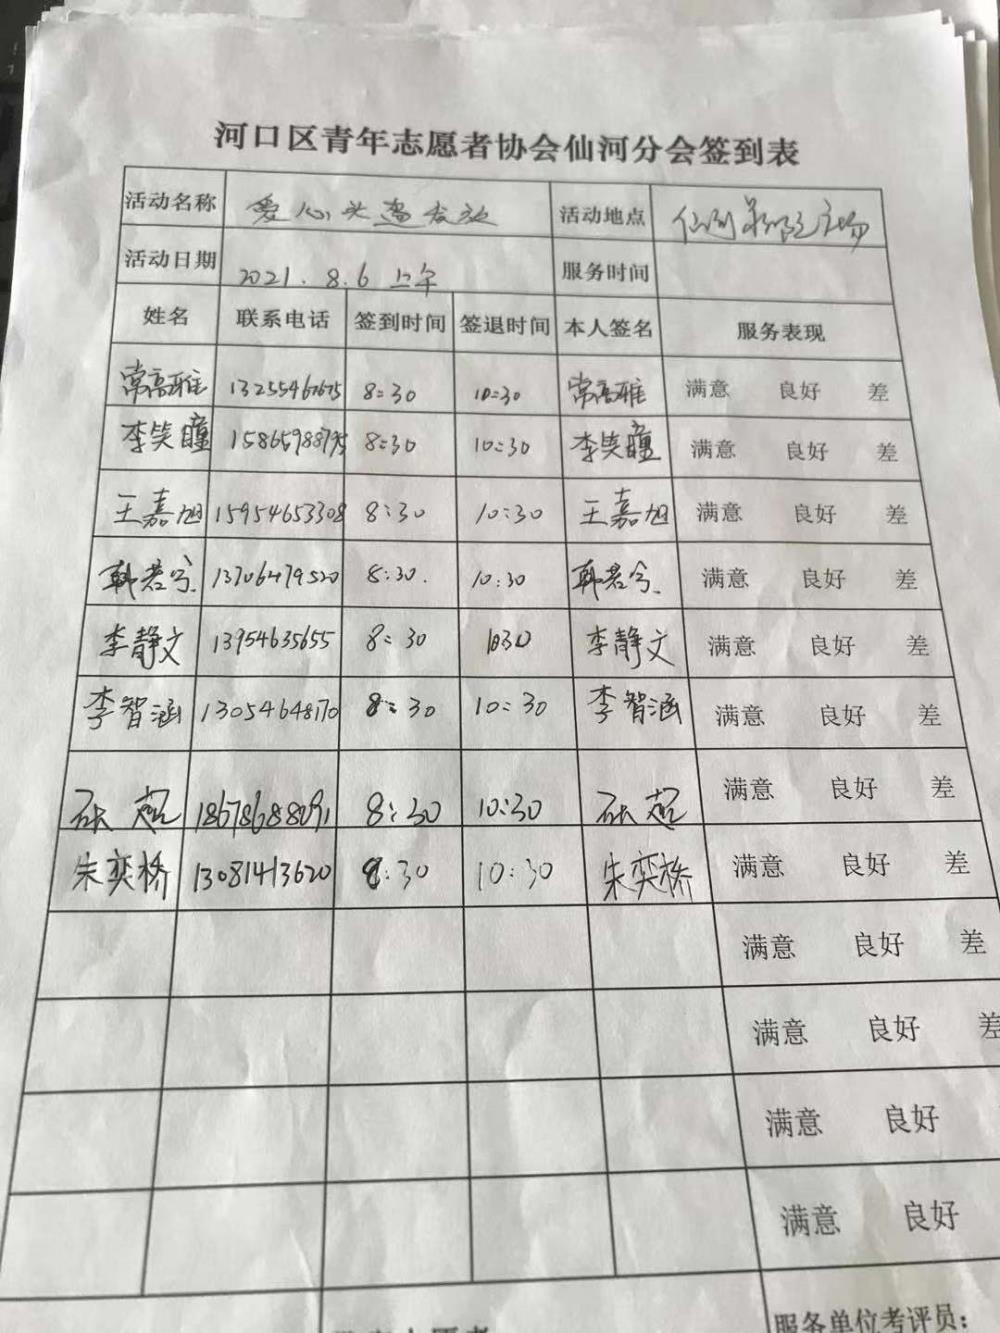 河口区青年志愿者协会仙河分会签到表
活动名称 爱心头盔发放 活动地点 仙河影院广场
活动日期 2021.8.6 上午 服务时间
姓名 联系电话 签到时间 签退时间 本人签名 服务表现
常高雅 13255467675 8:30 10:30 常高雅 满意 良好 差
李笑瞳 15865988795 8:30 10:30 李笑瞳 满意 良好 差
王嘉旭 15954653308 8:30 10:30 王嘉旭 满意 良好 差
韩若兮 13706479520 8:30. 10:30 韩若兮 满意 良好 差
李静文 13954635655 8:30 1030 李静文 满意 良好 差
李智涵 13054648170 8:30 10:30 李智涵 满意 良好 差
18678688091 8:30 10:30 满意 良好 差
朱奕桥 13081413620 8:30 10:30 朱奕桥 满意 良好 差
满意 良好 差
满意 良好 差
满意 良好
满意 良好
服务单位考评员: